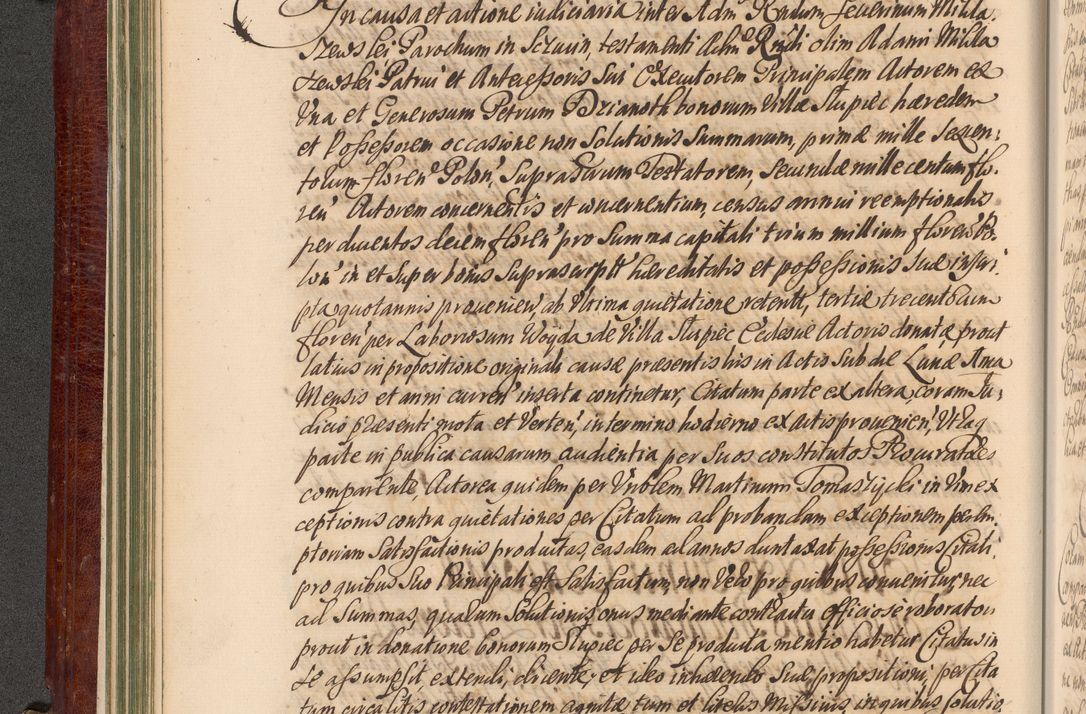 In causa et actione iudiciaria inter Adm Rndum Severinum Milla,
szewski Parochum in Sczucin, testamenti Adm Rndi olim Adami Milla
szewski Patrui et Antecessoris Sui Executorem Principalem Actorem ex
Una et Generosum Petrum Dzianoth bonorum Villæ Słupiec hæredem
et Possessorem occasione non Solutionis Summarum, primæ mille sexcen:
torum floren Polon, Suprascrum Testatorem, Secundæ mille centum flo:
ren Actorem concernentis et concernentium, census annui reemptionalis
per ducentos decem floren pro Summa capitali trium millium floren Po
lon in et Super bonis Suprascript hæreditatis et possessionis Suæ inscri,
pta quotannis provenien, ab Ultima quietatione retent, tertiæ trecentorum
floren per Laboriosum Woyda de Villa Słupiec Ecclesiæ Actoris donatæ prout
latius in propositione originali causæ præsentis his in Actis Sub die Lunæ
Mensis et anni curren inserta continetur, Citatum parte ex altera, coram Iu,
dicio præsenti mota et Verten, in termino hodierno ex actis provenien, Utraq
parte in publica causarum audientia per Suos constitutos Procuratores
comparente, Actorea quidem per Urblem Martinum Tomaszycki in Vim ex
ceptionis contra quietationes per Citatum ad probandam exceptionem perem
ptoriam Satisfactionis productas, easdem ad annos duntaxat possessionis Citati,
pro quibus Suo Principali est Satisfactum, non Vero pro quibus convenitur, nec
ad Summas, quarum Solutionis onus mediante contractu officiose roborato
prout in donatione bonorum Słupiec per Se producta mentio habetur Citatus in
Se assumpsit, extendi, dicente, et ideo inhærendo Suæ propositioni, per Cita
tum circa litis contestationem agnitæ tum et literis Missivis in quibus Solutio,